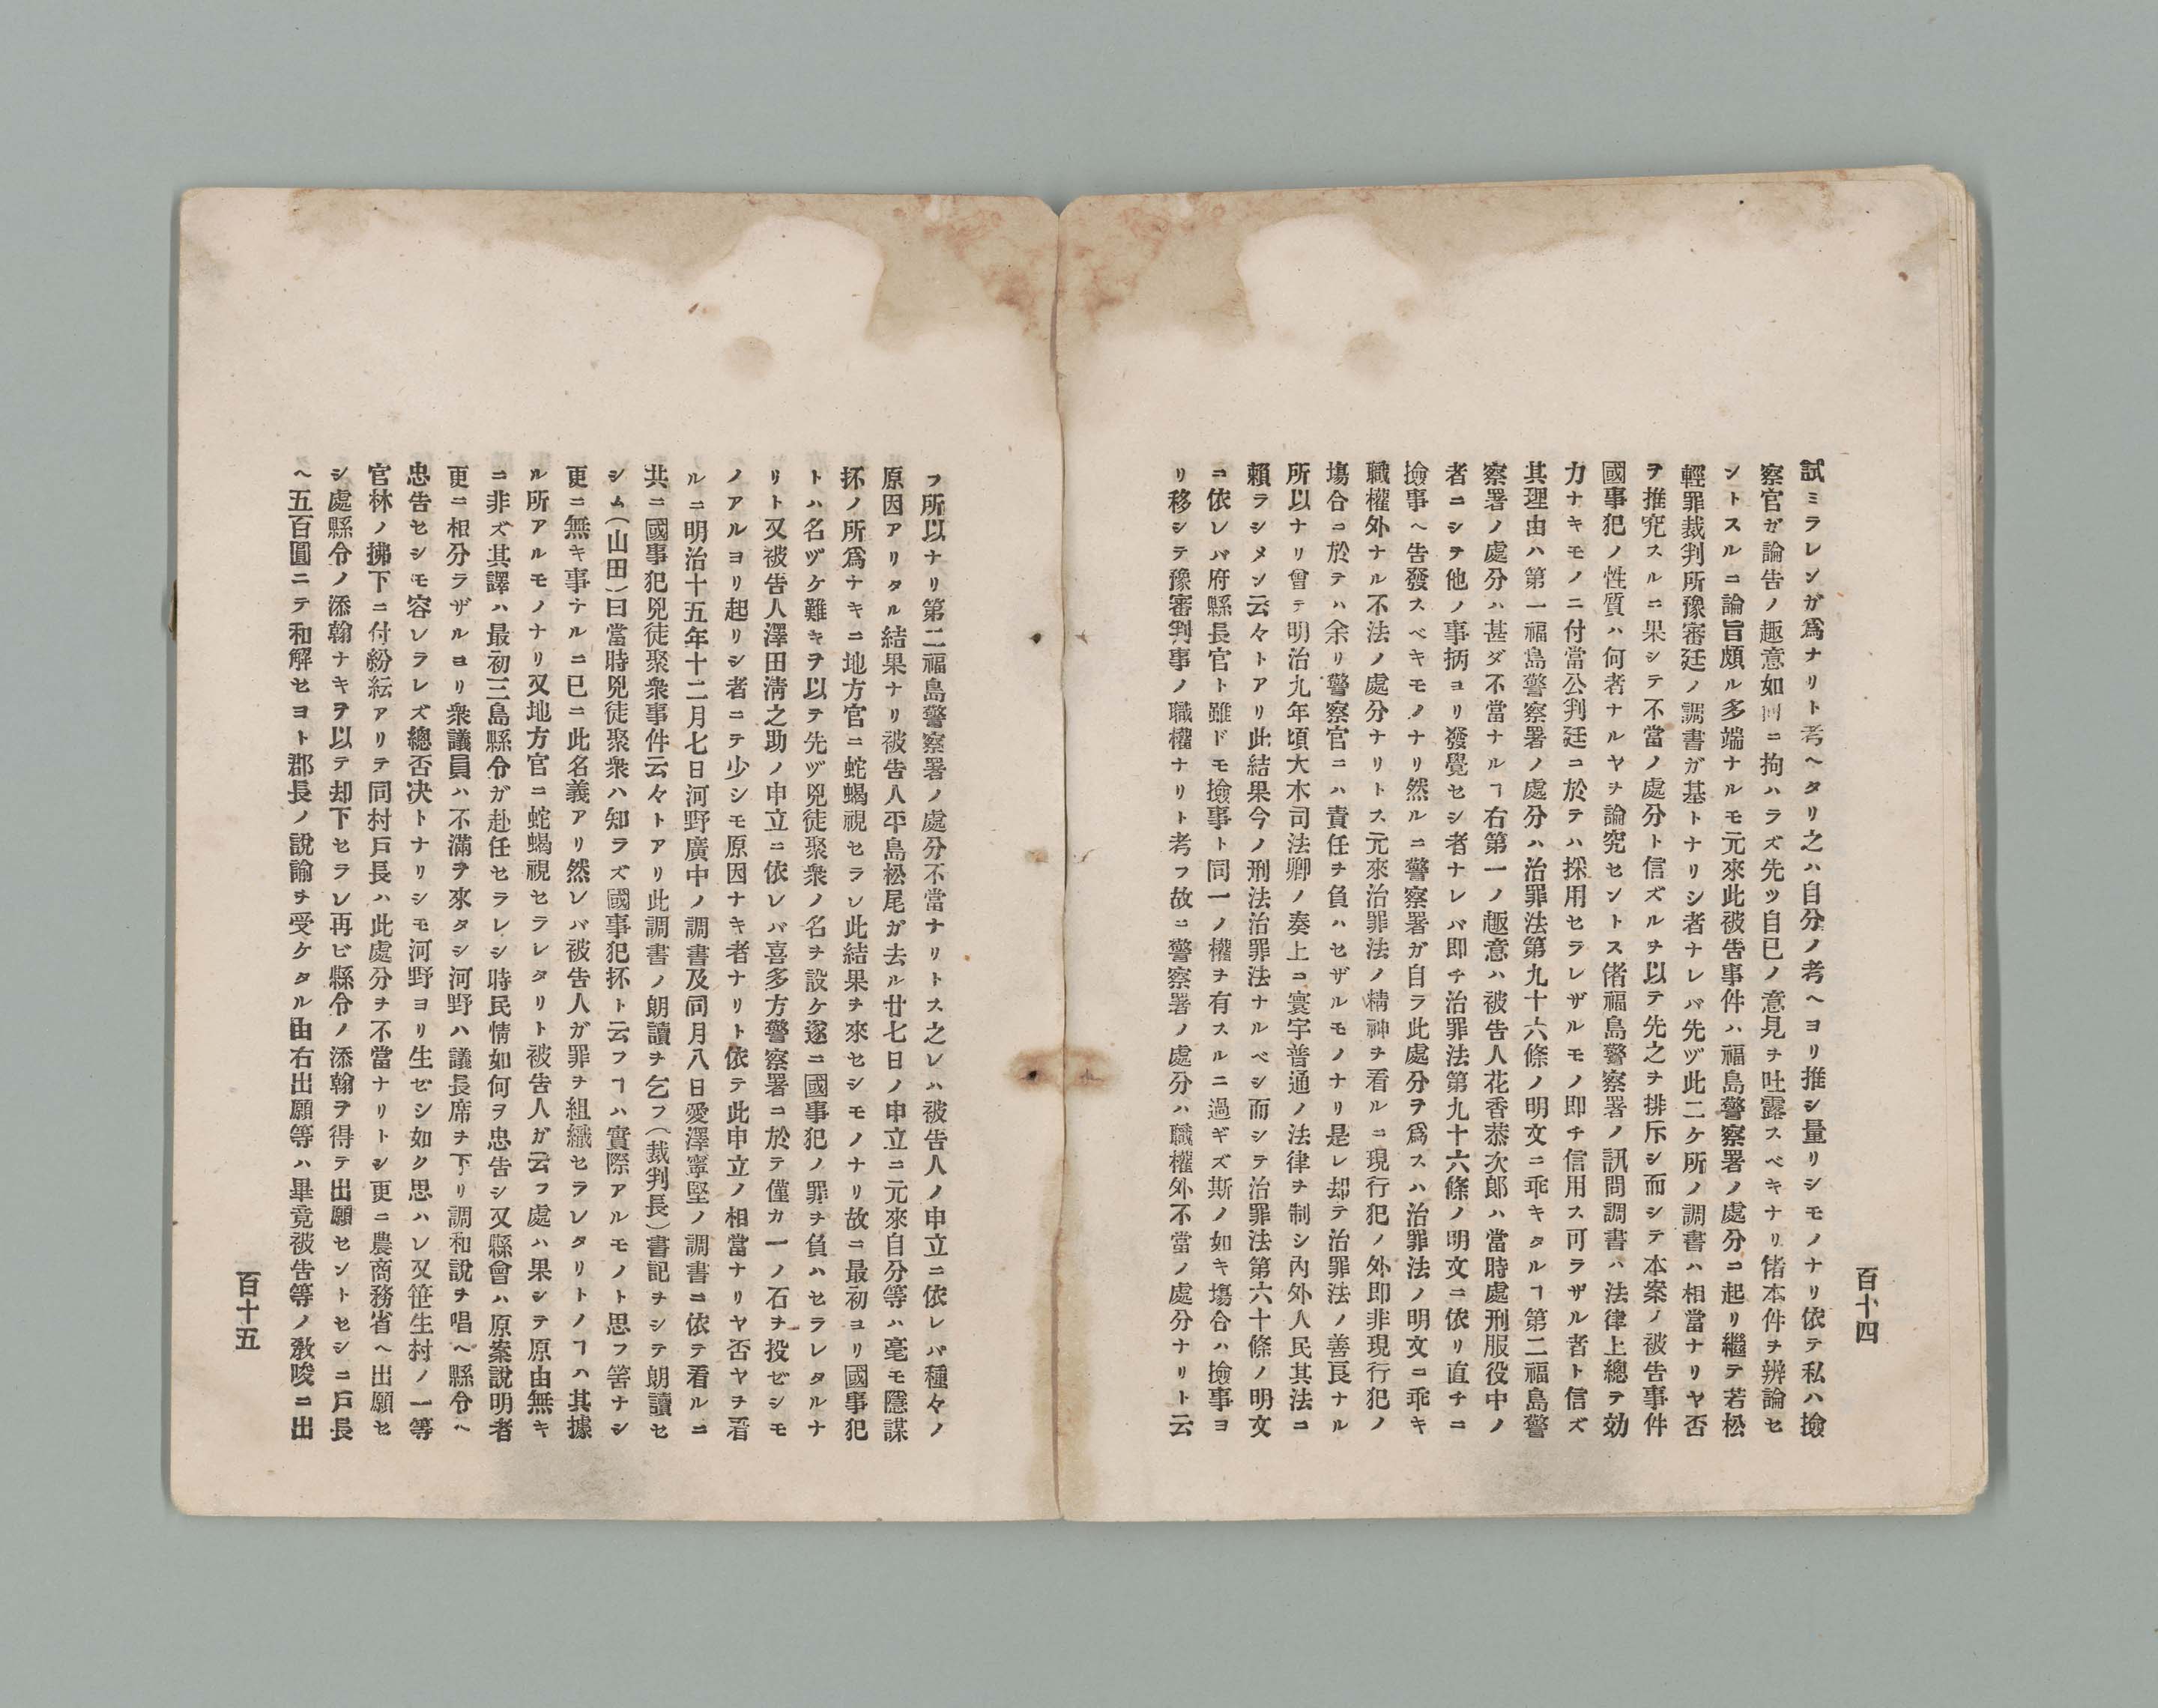 百十四
試ミラレンガ爲ナリト考ヘタリ之ハ自分ノ考ヘヨリ推シ量リシモノナリ依テ私ハ撿
察官ガ論告ノ趣意如何ニ拘ハラズ先ツ自已ノ意見ヲ吐露スベキナリ偖本件ヲ辨論セ
ントスルニ論旨頗ル多端ナルモ元來此被告事件ハ福島警察署ノ處分ニ起リ繼テ若松
輕罪裁判所豫審廷ノ調書ガ基トナリシ者ナレバ先ヅ此二ケ所ノ調書ハ相當ナリヤ否
ヲ推究スルニ果シテ不當ノ處分ト信ズルヲ以テ先之ヲ排斥シ而シテ本案ノ被告事件
國事犯ノ性質ハ何者ナルヤヲ論究セントス偖福島警察署ノ訊問調書ハ法律上總テ効
力ナキモノニ付當公判廷ニ於テハ採用セラレザルモノ即チ信用ス可ラザル者ト信ズ
其理由ハ第一福島警察署ノ處分ハ治罪法第九十六條ノ明文ニ乖キタルヿ第二福島警
察署ノ處分ハ甚ダ不當ナルヿ右第一ノ趣意ハ被告人花香恭次郎ハ當時處刑服役中ノ
者ニシテ他ノ事柄ヨリ發覺セシ者ナレバ即チ治罪法第九十六條ノ明文ニ依リ直チニ
撿事ヘ告發スベキモノナリ然ルニ警察署ガ自ラ此處分ヲ爲スハ治罪法ノ明文ニ乖キ
職權外ナル不法ノ處分ナリトス元來治罪法ノ精神ヲ看ルニ現行犯ノ外即非現行犯ノ
塲合ニ於テハ余リ警察官ニハ責任ヲ負ハセザルモノナリ是レ却テ治罪法ノ善良ナル
所以ナリ曾テ明治九年頃大木司法卿ノ奏上ニ寰宇普通ノ法律ヲ制シ內外人民其法ニ
賴ラシメン云々トアリ此結果今ノ刑法治罪法ナルベシ而シテ治罪法第六十條ノ明文
ニ依レバ府縣長官ト雖ドモ撿事ト同一ノ權ヲ有スルニ過ギズ斯ノ如キ塲合ハ撿事ヨ
リ移シテ豫審判事ノ職權ナリト考フ故ニ警察署ノ處分ハ職權外不當ノ處分ナリト云
フ所以ナリ第二福島警察署ノ處分不當ナリトス之レハ被告人ノ申立ニ依レバ種々ノ
原因アリタル結果ナリ被告人平島松尾ガ去ル廿七日ノ申立ニ元來自分等ハ毫モ隱謀
抔ノ所爲ナキニ地方官ニ蛇蝎視セラレ此結果ヲ來セシモノナリ故ニ最初ヨリ國事犯
トハ名ヅケ難キヲ以テ先ヅ兇徒聚衆ノ名ヲ設ケ遂ニ國事犯ノ罪ヲ負ハセラレタルナ
リト又被告人澤田淸之助ノ申立ニ依レバ喜多方警察署ニ於テ僅カ一ノ石ヲ投ゼシモ
ノアルヨリ起リシ者ニテ少シモ原因ナキ者ナリト依テ此申立ノ相當ナリヤ否ヤヲ看
ルニ明治十五年十二月七日河野廣中ノ調書及同月八日愛澤寧堅ノ調書ニ依テ看ルニ
共ニ國事犯兇徒聚衆事件云々トアリ此調書ノ朗讀ヲ乞フ（裁判長）書記ヲシテ朗讀セ
シム（山田）曰當時兇徒聚衆ハ知ラズ國事犯抔ト云フヿハ實際アルモノト思フ筈ナシ
更ニ無キ事ナルニ已ニ此名義アリ然レバ被告人ガ罪ヲ組織セラレタリトノヿハ其據
ル所アルモノナリ又地方官ニ蛇蝎視セラレタリト被告人ガ云フ處ハ果シテ原由無キ
ニ非ズ其譯ハ最初三島縣令ガ赴任セラレシ時民情如何ヲ忠告シ又縣會ハ原案說明者
更ニ相分ラザルヨリ衆議員ハ不滿ヲ來タシ河野ハ議長席ヲ下リ調和說ヲ唱ヘ縣令ヘ
忠告セシモ容レラレズ總否決トナリシモ河野ヨリ生ゼシ如ク思ハレ又笹生村ノ一等
官林ノ拂下ニ付紛紜アリテ同村戶長ハ此處分ヲ不當ナリトシ更ニ農商務省ヘ出願セ
シ處縣令ノ添翰ナキヲ以テ却下セラレ再ビ縣令ノ添翰ヲ得テ出願セントセシニ戶長
ヘ五百圓ニテ和解セヨト郡長ノ說諭ヲ受ケタル由右出願等ハ畢竟被告等ノ敎唆ニ出
百十五